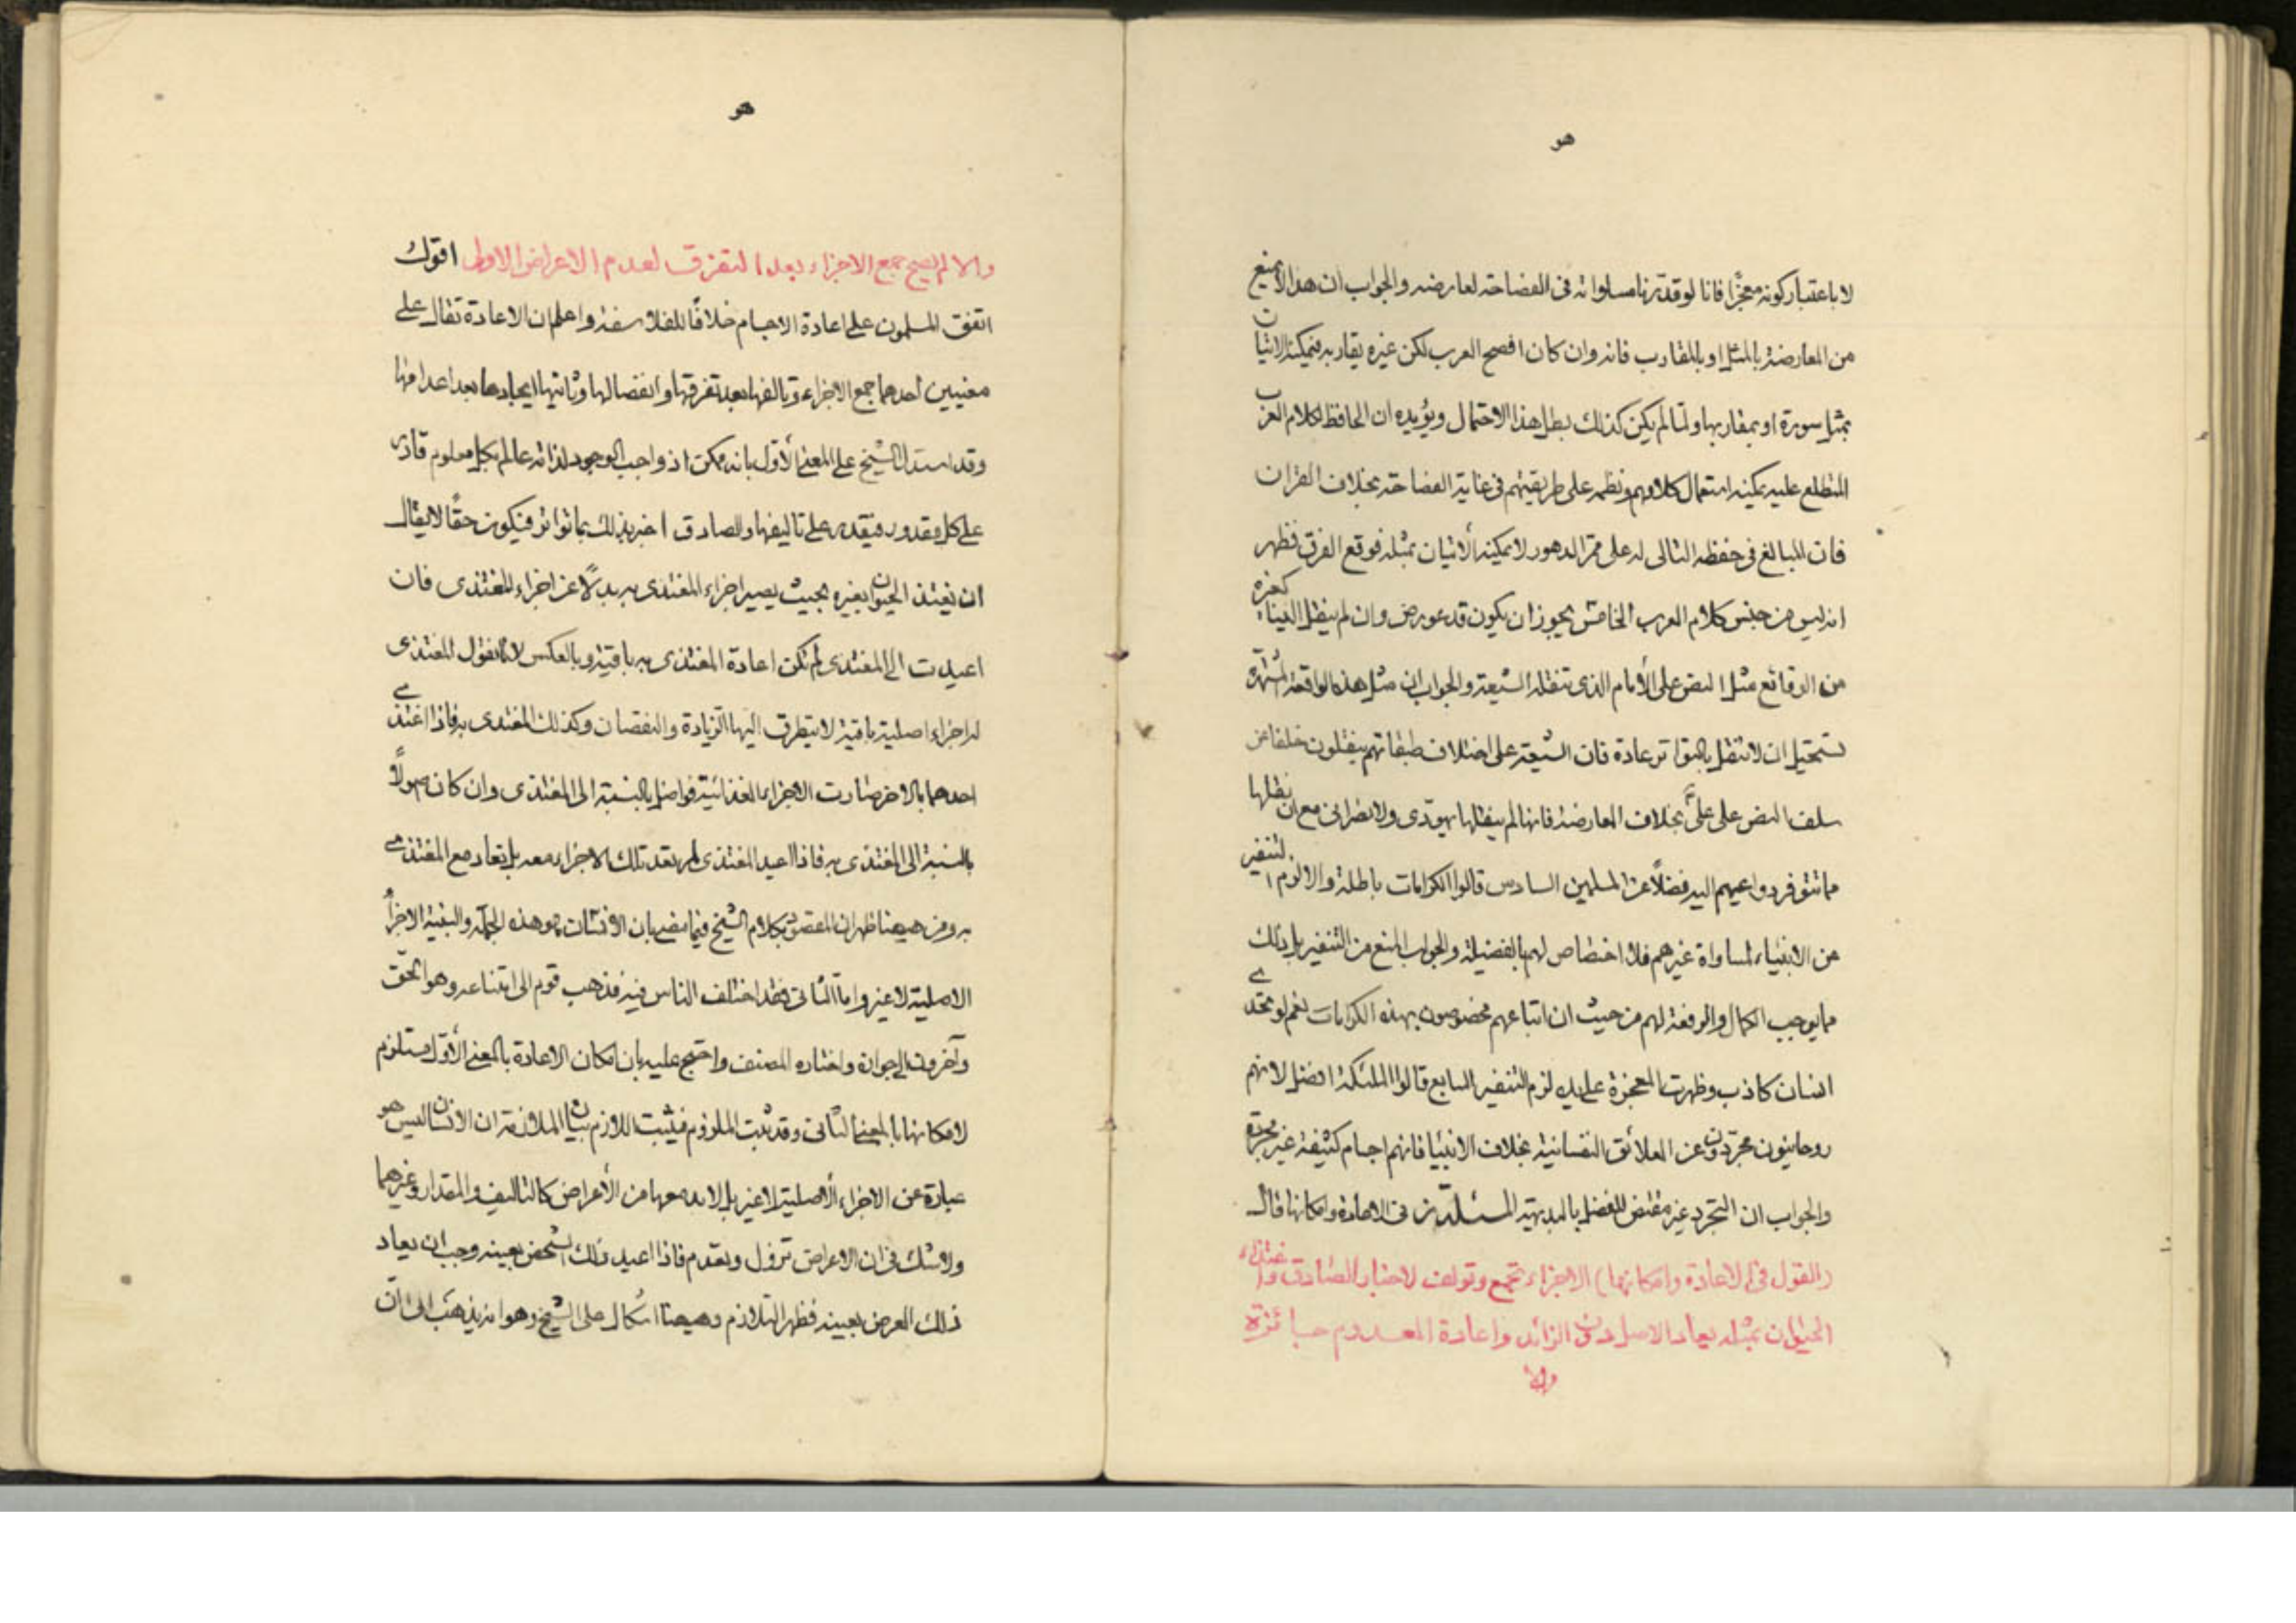 هو
لا باعتبار كونه معجزا فانا لو قدرنا مساواته فى الفصاحة لعارضه والجواب ان هذا لا يمنع
من المعارضة بالمثل او بالمقارب فانه وان كان افصح العرب لكن غيره يقاربه فيمكنه الاتيان
بمثل سورة او بمقاربها ولما لم يكن كذلك بطل هذا الاحتمال ويؤيده ان الحافظ لكلام العرب
المتطلع عليه يمكنه استعمال كلامهم ونظمه على طريقتهم فى غاية الفصاحة بخلاف القران
فان المبالغ فى حفظه التالى له على ممر الدهور لا يمكنه الأتيان بمثله فوقع الفرق فظهر
انه ليس من جنس كلام العرب الخامس يجوز ان يكون قد عورض وان لم ينقل الينا كغيره
من الوقائع مثل النص على الأمام الذى تنقله الشيعة والجواب ان مثل هذه الواقعة المشتهرة
تستحيل ان لا تنقل بالتواتر عادة فان الشيعة على اختلاف طبقاتهم ينقلون خلفا عن
سلف النص على على بخلاف المعارضة فانها لم ينقلها يهودى ولا نصرانى مع ان نقلها
مما تتوفر دواعيهم اليه فضلاً عن المسلمين السادس قالوا الكرامات باطلة والا لزم التنفير
من الانبياء لمساواة غيرهم فلا اختصاص لهم بالفضيلة والجواب المنع من التنفير بل ذلك
مما يوجب الكمال والرفعة لهم من حيث ان اتباعهم مخصوصون بهذه الكرامات نعم لو تحدى
انسان كاذب وظهرت المعجزة على يده لزم التنفير السابع قالوا الملئكة افضل لانهم
روحانيون مجردون عن العلائق النفسانية بخلاف الانبيا فانهم اجسام كثيفة غير مجردة
والجواب ان التجرد غير مقتض للفضل بالبديهة المسئلة فى الاعادة وامكانها قال
(القول فى الاعادة وامكانها) الاجزاء تجمع وتولف لاخبار الصادق واغتذاء
الحيوان بمثله يعاد الاصل دون الزائد واعادة المعدوم جائزة
والا
هو
والا لم يصح جمع الاجزاء بعد التفرق لعدم الاعراض الاولى اقول
اتفق المسلمون على اعادة الاجسام خلافًا للفلاسفة واعلم ان الاعادة تقال على
معنيين أحدهما جمع الاجزاء وتالفها بعد تفرقتها وانفصالها وثانيها ايجادها بعد اعدامها
وقد استدل الشيخ على المعنى الأول بانه ممكن اذ واجب الوجود لذاته عالم بكل معلوم قادر
على كل مقدور فيقدر على تاليفها والصادق اخبر بذلك بما تواتر فيكون حقًا لا يقال
ان يغتذ الحيوان بغيره بحيث يصير اجزاء المغتذى به بدلًا عن اجزاء المغتذى فان
اعيدت الى المغتذى لم تكن اعادة المغتذى به باقية وبالعكس لانا نقول للمغتذى
له اجزاء اصلية باقية لا يتطرق اليها الزيادة والنقصان وكذلك المغتذى به فاذا اغتذى
احدهما بالاخر صارت الاجزاء الغذائية فواضل بالنسبة الى المغتذى وان كان اصولًا
بالنسبة الى المغتذى به فاذا اعيد المغتذى لم تعد تلك الاجزاء معه بل تعاد مع المغتذى
به ومن هيهنا ظهر ان المقصود بكلام الشيخ فيما مضى بان الانسان هو هذه الجملة والبنية الاجزاء
الاصلية لا غير واما الثانى فقد اختلف الناس فيه فذهب قوم الى امتناعه وهو الحق
وآخرون الى جوازه واختاره المصنف واحتج عليه بان امكان الاعادة بالمعنى الأول مستلزم
لامكانها بالمعنى الثانى وقد ثبت الملزوم فيثبت اللازم بيان الملازمة ان الانسان ليس هو
عبارة عن الاجزاء الأصلية لا غير بل لا بد معها من الأعراض كالتاليف والمقدار وغيرهما
ولا شك فى ان الاعراض تزول وتعدم فاذا اعيد ذلك الشخص بعينه وجب ان يعاد
ذلك العرض بعينه فظهر التلازم وهيهنا اشكال على الشيخ وهو انه يذهب الى ان